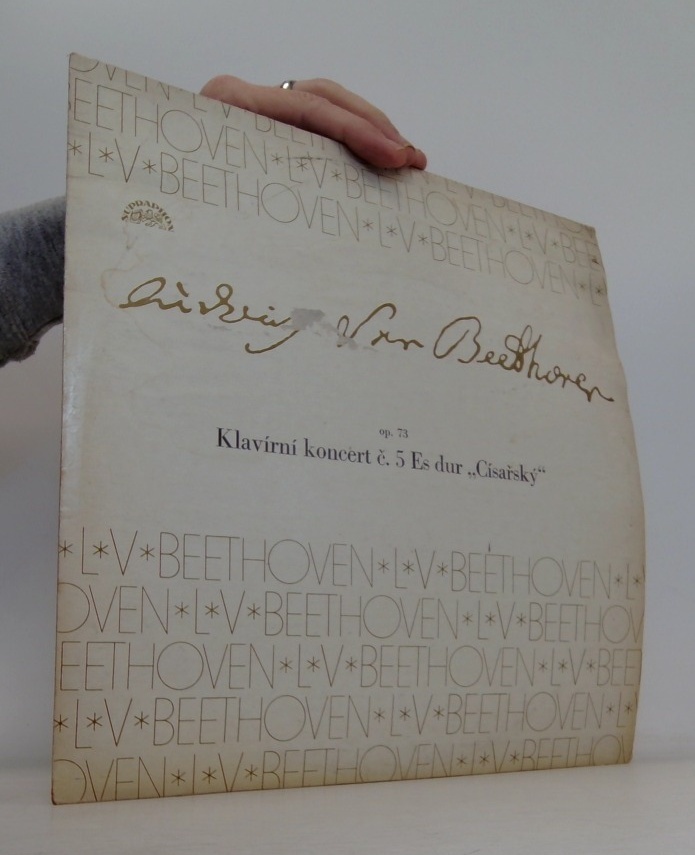 OVEN*L*V*BEETH
EETHOVEN*L*V*BEETHOVEN*L*V*BEE
*L*V*BEETHOVEN*L*V*BEETHOVEN*L
SUPRAPHON
Ludwig van Beethoven
op. 73
Klavírní koncert č. 5 Es dur „Císařský“
*L*V*BEETHOVEN*L*V*BEETHOVEN*L*
OVEN*L*V*BEETHOVEN*L*V*BEETHOV
EETHOVEN*L*V*BEETHOVEN*L*V*BEET
*L*V*BEETHOVEN*L*V*BEETHOVEN*L*
OVEN*L*V*BEETHOVEN*L*V*BEETHO